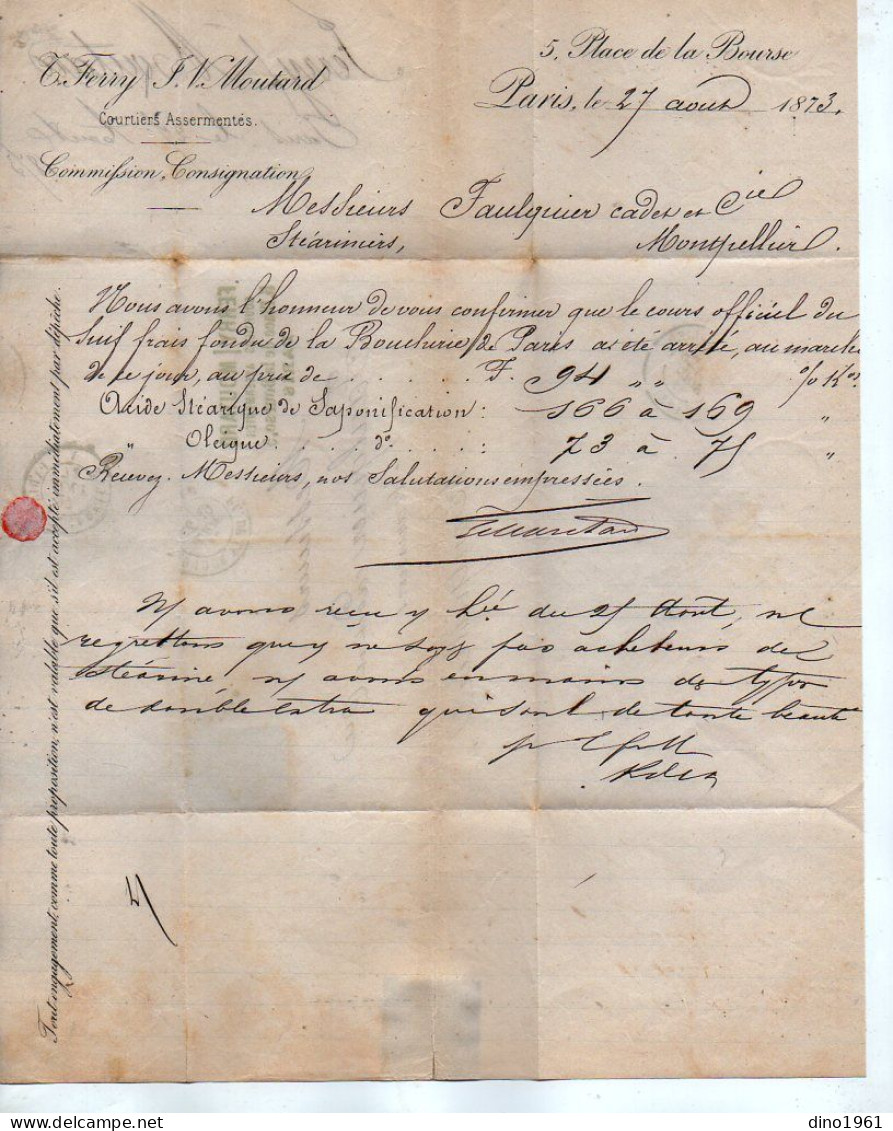 T. Ferry J. V. Moutard
Courtiers Assermentés.
Commission, Consignation
5, Place de la Bourse
Paris, le 27 aout 1873.
Messieurs Faulquier cadet et Cie
Stéariniers, Montpellier.
Nous avons l'honneur de vous confirmer que le cours officiel du
Suif frais fondu de la Boucherie de Paris a été arrêté, au marché
de ce jour, au prix de . . . . . . F. 94 „ „ % Kos
Acide Stéarique de Saponification : 166 à 169 „
„ Oléique . . . . do . . . . : 73 à 75 „
Recevez, Messieurs, nos Salutations empressées.
N/ avons reçu v/ hée du 25 Aout, nt
regrettons que v/ ne soyez pas acheteurs de
stéarine n/ avons en mains des types
de double extra qui sont de toute beauté
Tout engagement, comme toute proposition, n'est valable que s'il est accepté immédiatement par dépêche.
dino1961